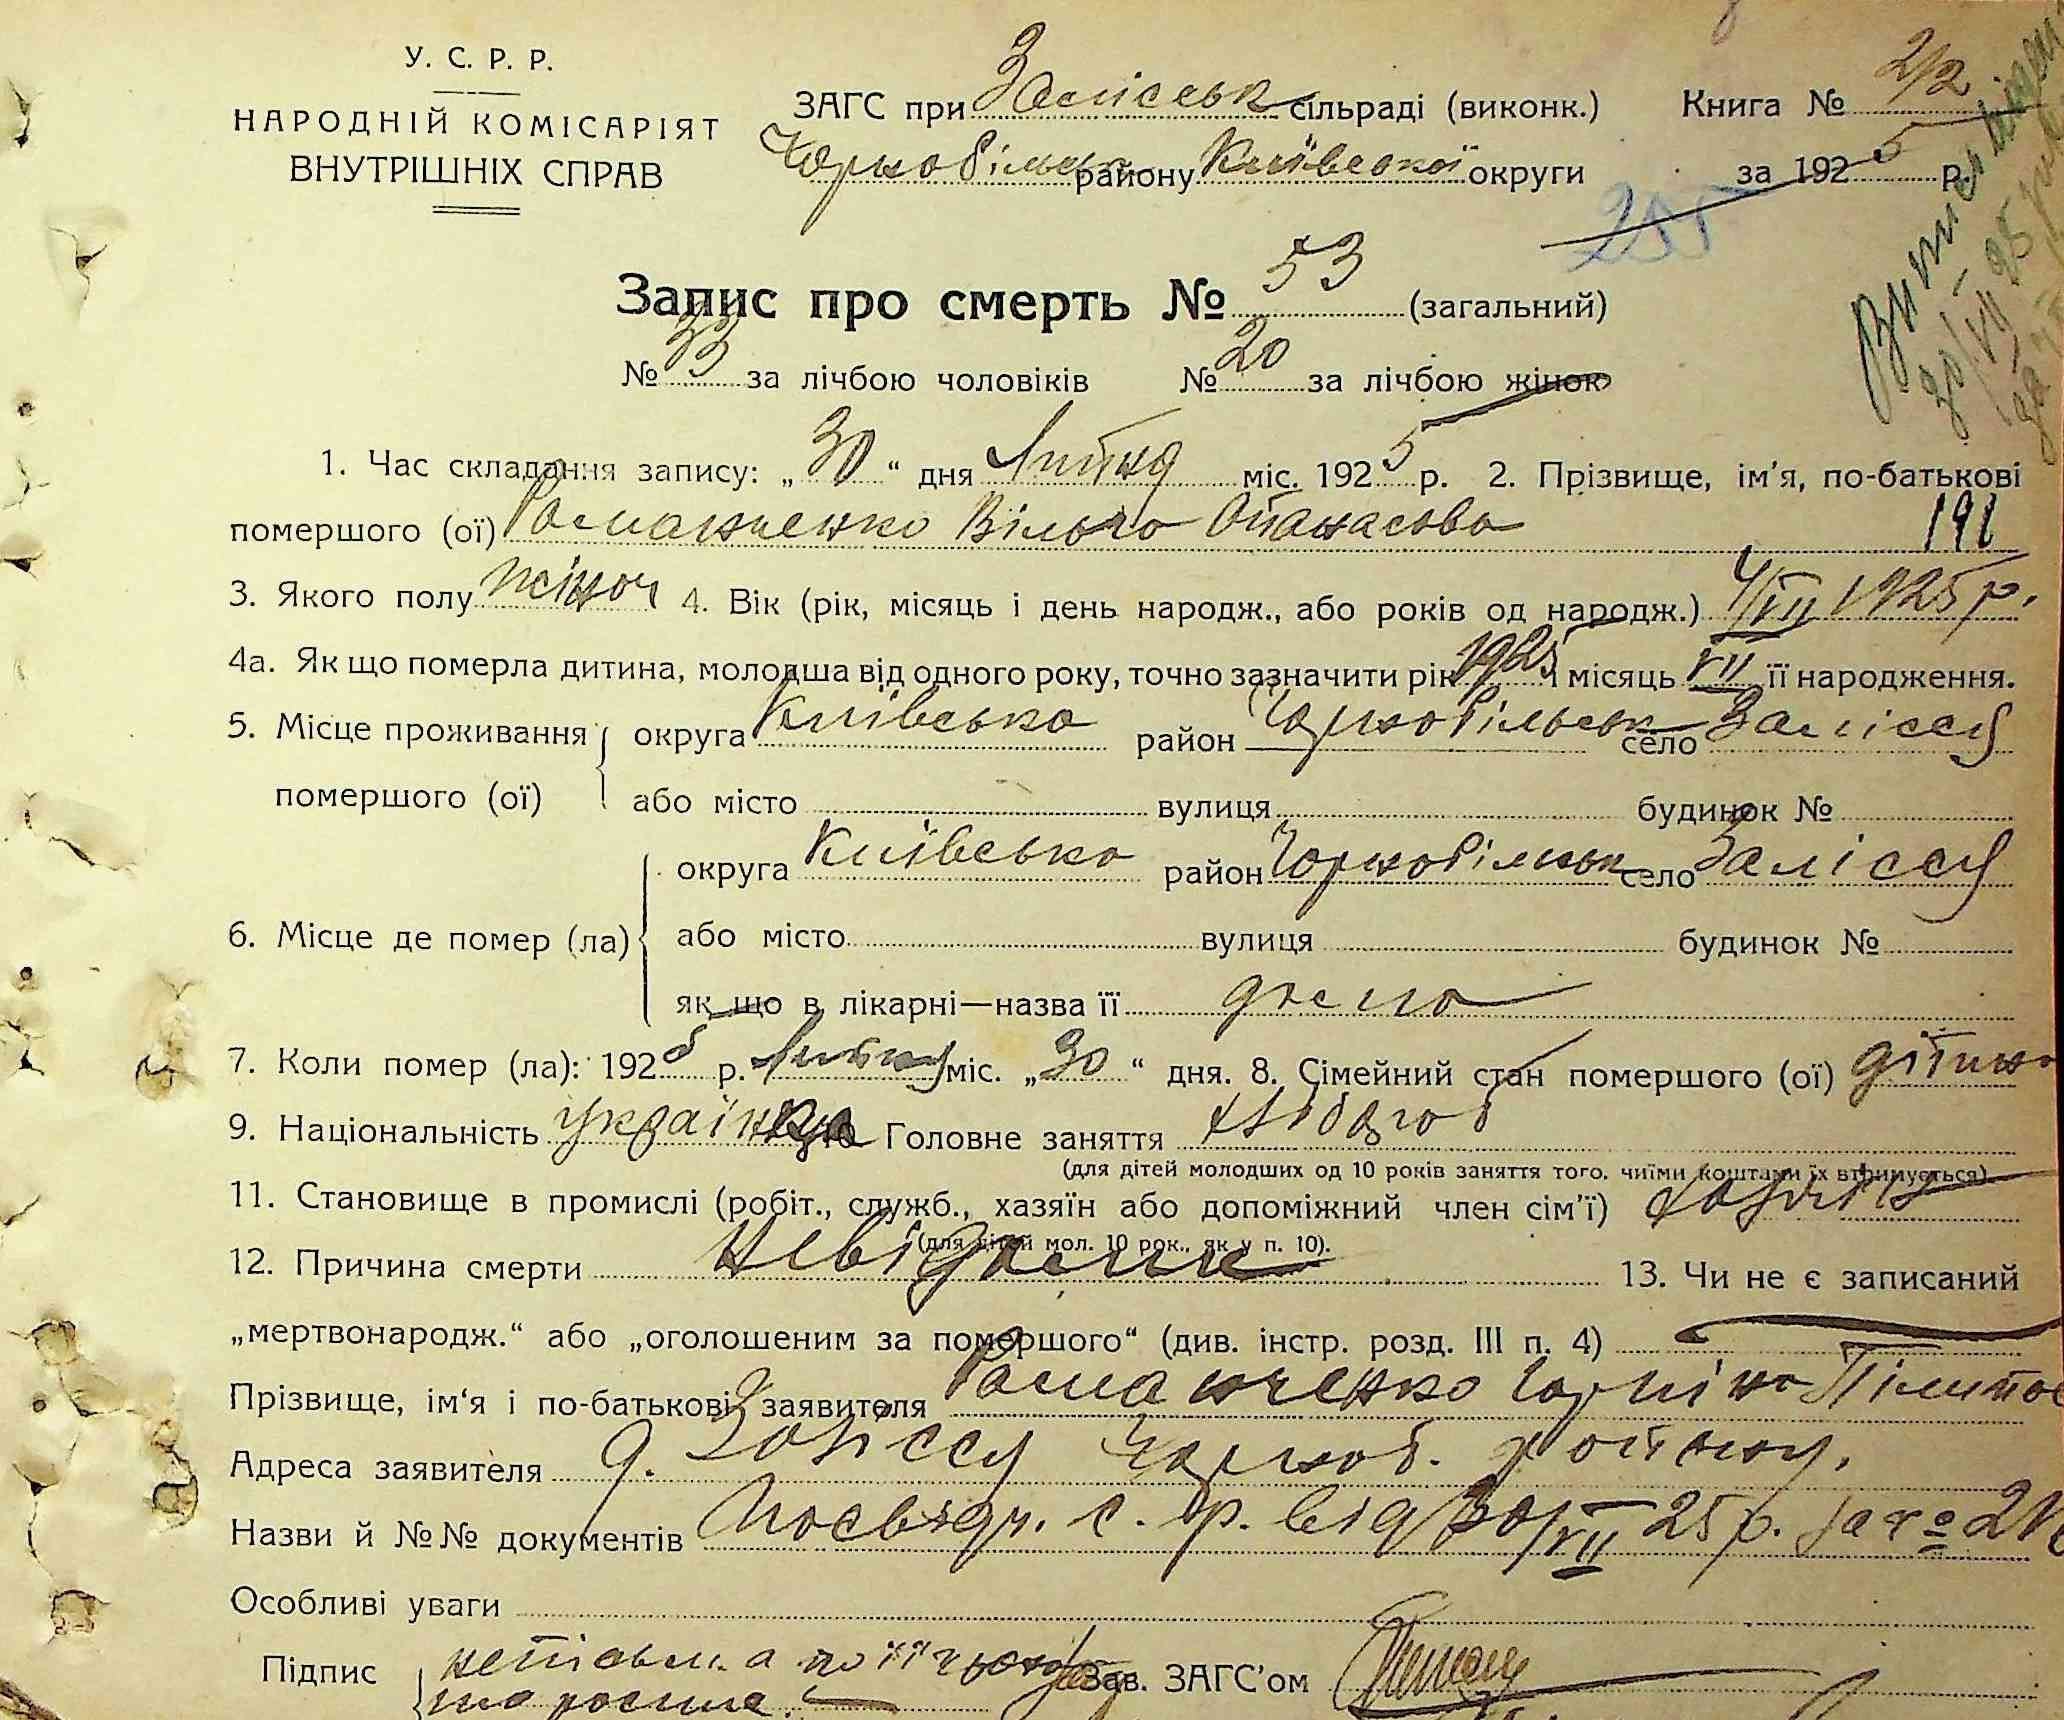 У. С. Р. Р.
НАРОДНІЙ КОМІСАРІЯТ
ВНУТРІШНІХ СПРАВ
ЗАГС при Залісськ сільраді (виконк.) Книга № 2/2
Чорнобільськ району Київської округи за 1925 р.
255
Запис про смерть № 53 (загальний)
№ 33 за лічбою чоловіків № 20 за лічбою жінок
1. Час складання запису: „30“ дня Липня міс. 1925 р. 2. Прізвище, ім'я, по-батькові
помершого (ої) Романченко Вільго Опанасова 191
3. Якого полу жіноч 4. Вік (рік, місяць і день народж., або років од народж.) 4/VII 1925 р.
4а. Як що померла дитина, молодша від одного року, точно зазначити рік 1925 і місяць VII її народження.
5. Місце проживання округа Київсько район Чорнобільськ село Заліссу
помершого (ої) або місто вулиця будинок №
округа Київсько район Чорнобільськ село Заліссу
6. Місце де помер (ла) або місто вулиця будинок №
як що в лікарні—назва її дома
7. Коли помер (ла): 1925 р. Липну міс. „30“ дня. 8. Сімейний стан помершого (ої) дітина
9. Національність українка 10 Головне заняття хлібороб
(для дітей молодших од 10 років заняття того. чиїми коштами їх втримується)
11. Становище в промислі (робіт., служб., хазяїн або допоміжний член сім'ї) хазяін
(для дітей мол. 10 рок., як у п. 10).
12. Причина смерти невідома 13. Чи не є записаний
„мертвонародж.“ або „оголошеним за помершого“ (див. інстр. розд. III п. 4)
Прізвище, ім'я і по-батькові заявителя Романченко
Адреса заявителя д. Заліссу Чорноб. району.
Назви й №№ документів Посвідч. с. р. від 30/VII 25 р. за № 21
Особливі уваги
Підпис неписьмена Зав. ЗАГС'ом